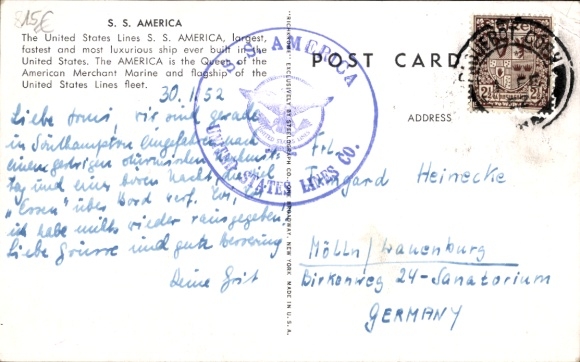 15€
S. S. AMERICA
The United States Lines S. S. AMERICA, largest,
fastest and most luxurious ship ever built in the
United States. The AMERICA is the Queen of the
American Merchant Marine and flagship of the
United States Lines fleet.
30.1.52
Liebe wir sind gerade
in Southampton eingefahren nach
einem gestrigen stürmischen
tag und einer Nacht,
"Essen" über Bord
ich habe nichts wieder rausgegeben.
Liebe Grüsse und gute Besserung
Deine Grit
"RICHTONE" EXCLUSIVELY BY STEELOGRAPH CO. BROADWAY, NEW YORK MADE IN U.S.A.
S. S. AMERICA
UNITED STATES LINES
UNITED STATES LINES CO.
POST CARD
ADDRESS
Frl.
Irmgard Heinecke
Mölln/Lauenburg
Birkenweg 24-Sanatorium
GERMANY
2½